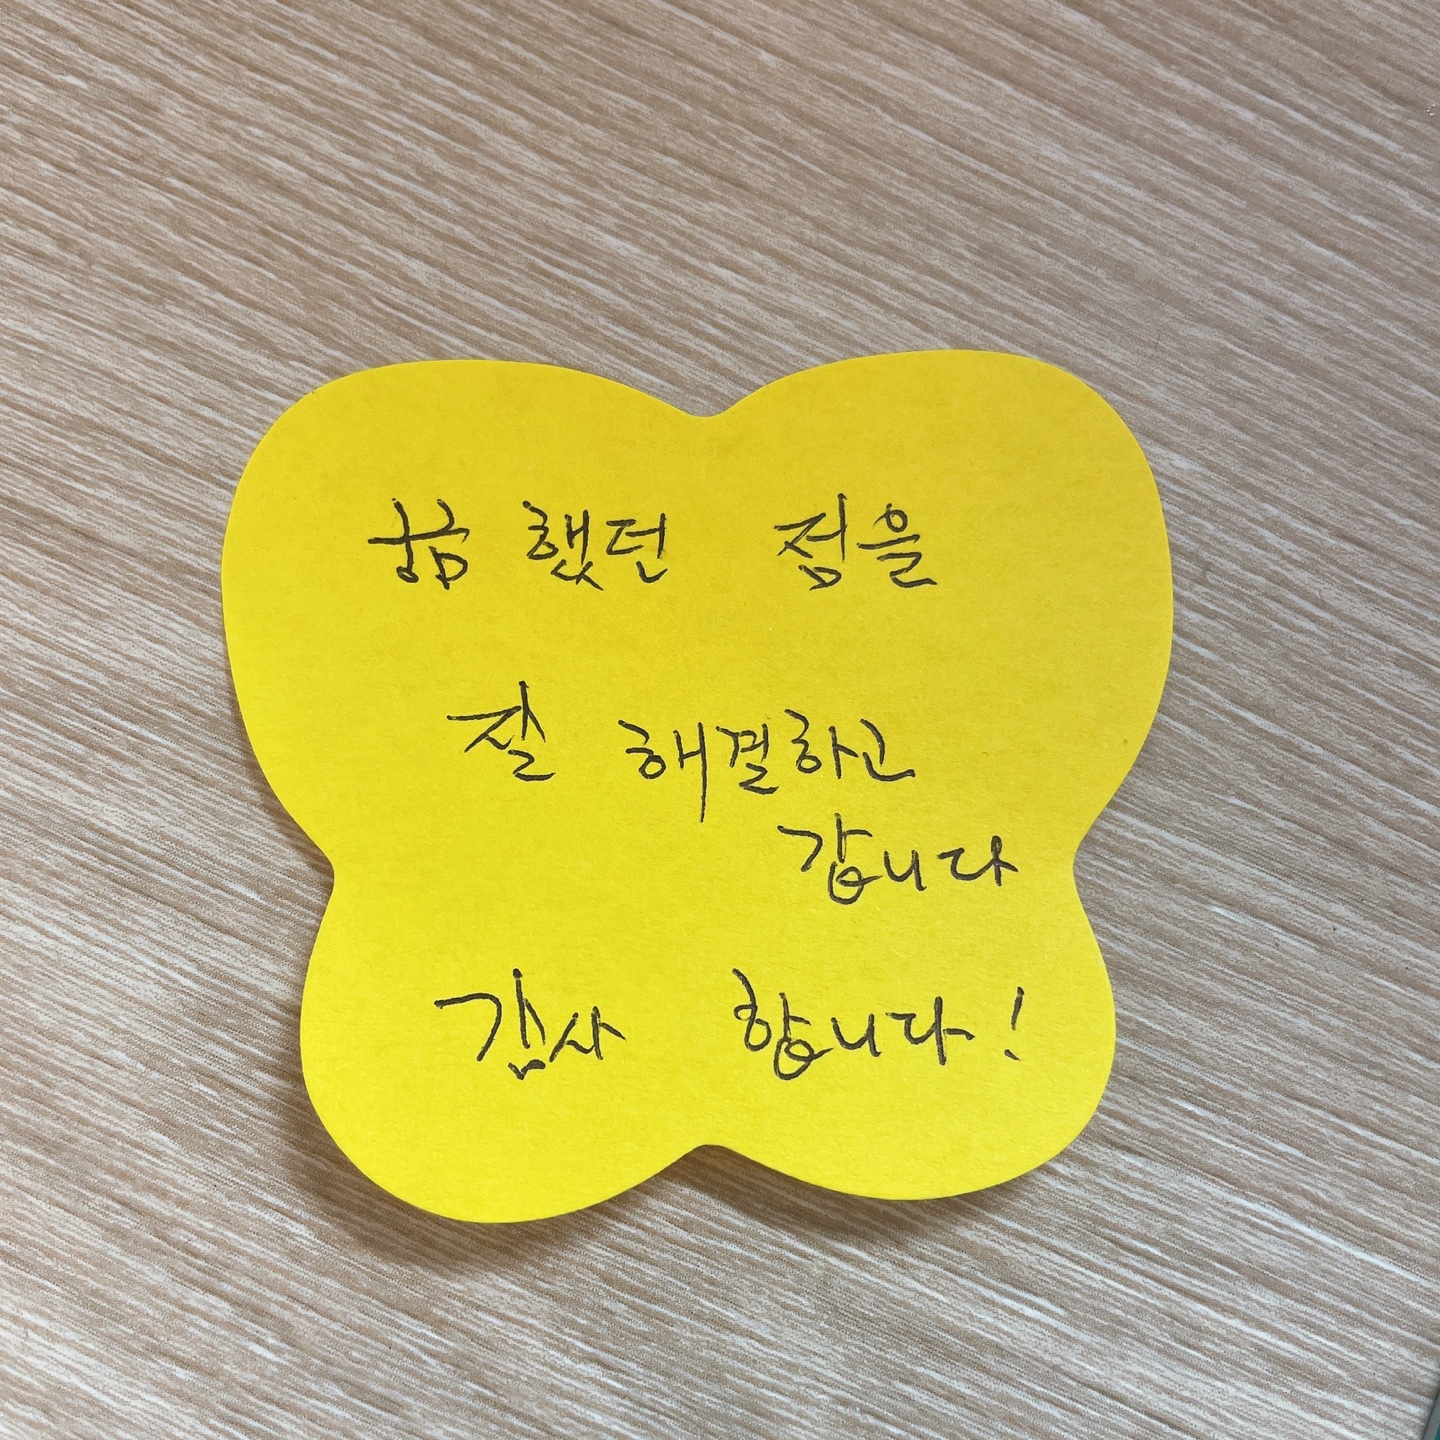 궁금 했던 점을
잘 해결하고
갑니다
감사 합니다!